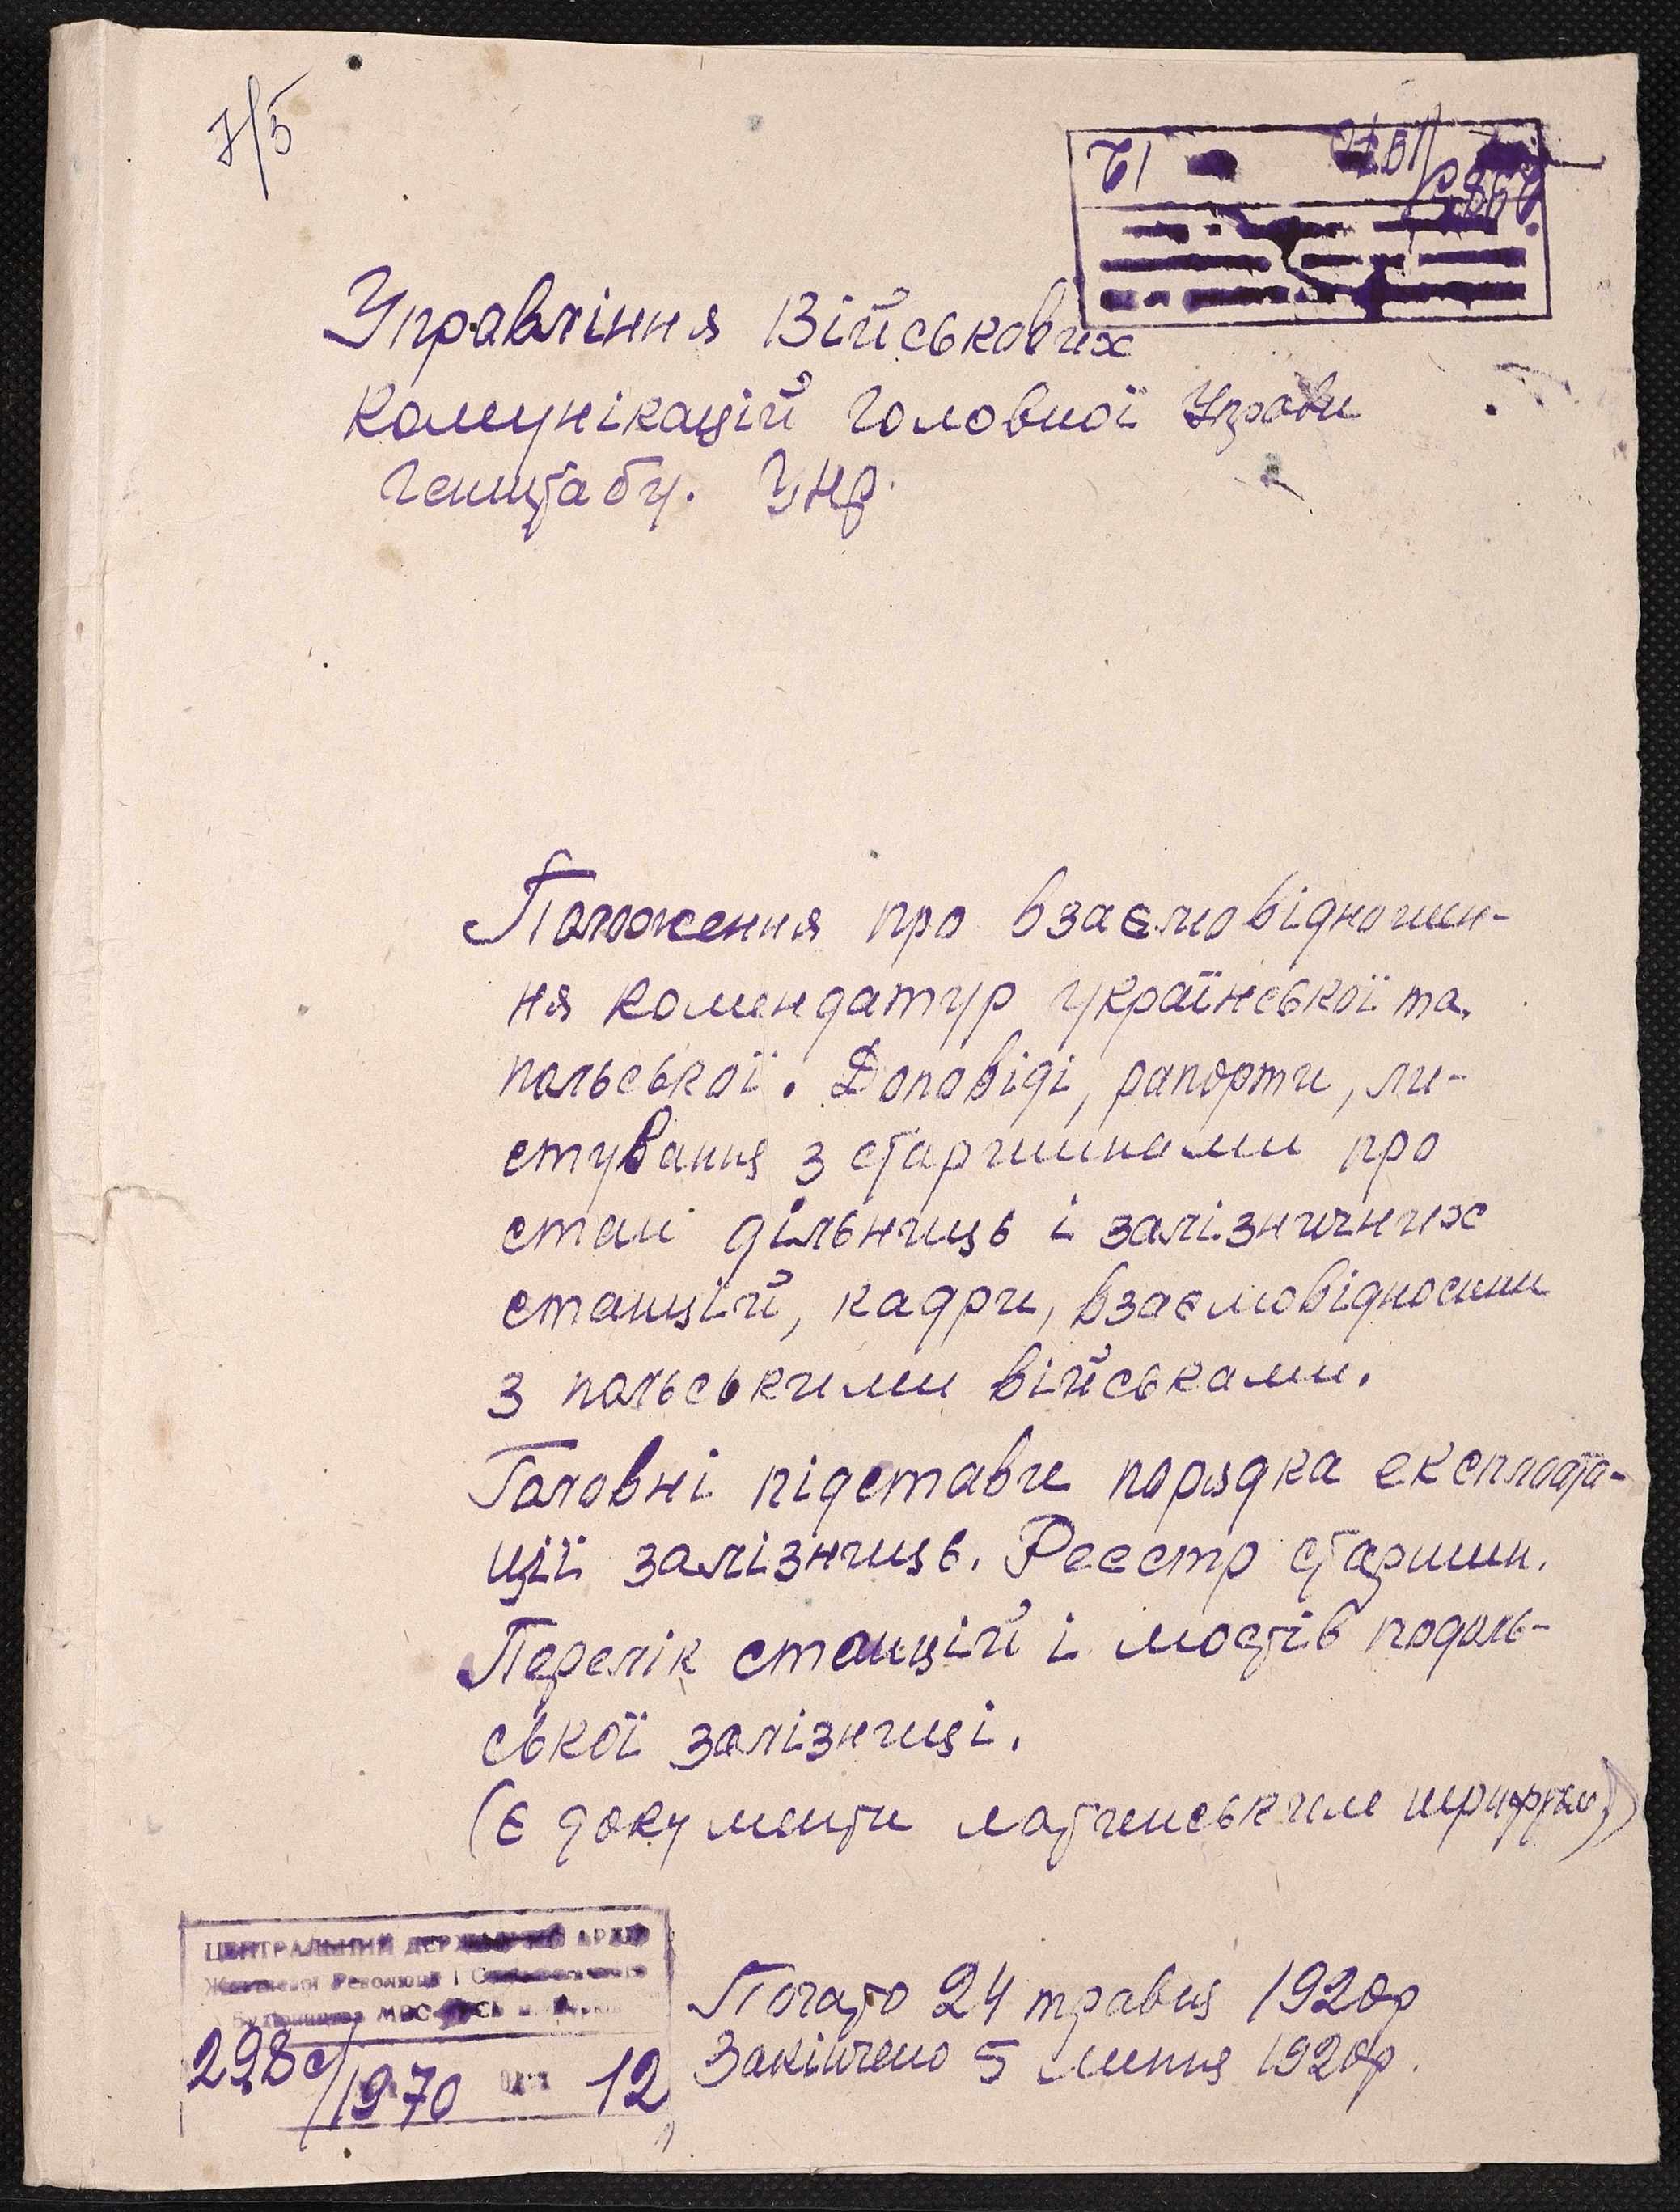 7/5
Управління Військових
Комунікацій Головної Управи
Генштабу. УНР.
Положення про взаємовідношен-
ня комендатур української та
польської. Доповіді, рапорти, ли-
стування з старшинами про
стан дільниць і залізничних
станцій, кадри, взаємовідносини
з польськими військами.
Головні підстави порядка експлоата-
ції залізниць. Реєстр старшин.
Перелік станцій і мостів подоль-
ської залізниці.
(Є документи латинським шрифтом)
ЦЕНТРАЛЬНИЙ ДЕРЖАВНИЙ АРХІВ
Жовтневої Революції і
МВС
298с/1970 12
Почато 24 травня 1920р
Закінчено 5 липня 1920р.